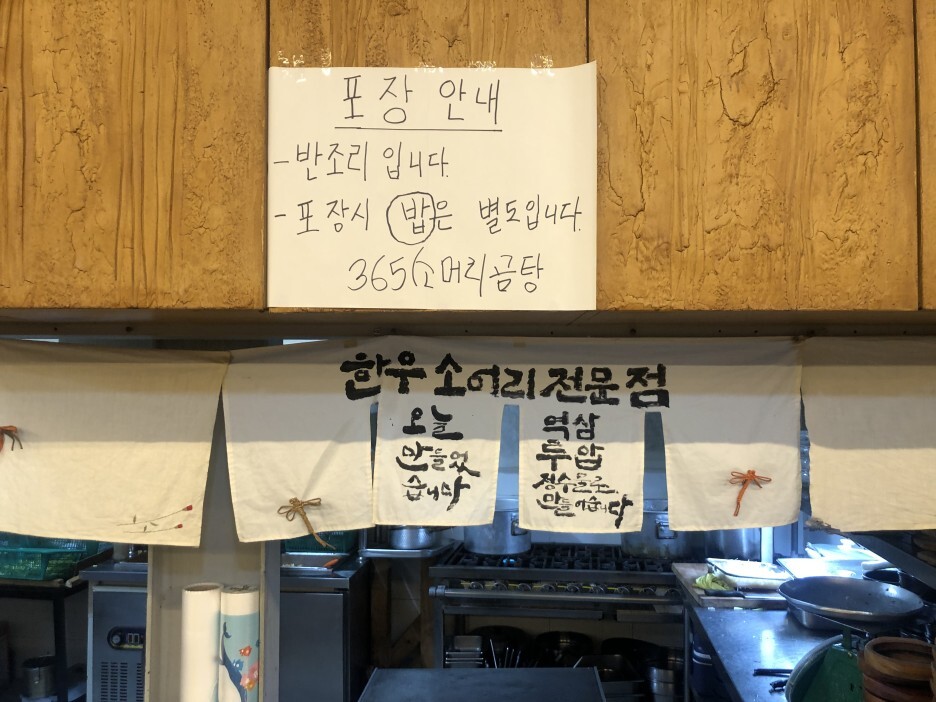 포장 안내
- 반조리 입니다.
- 포장시 밥은 별도입니다.
365소머리곰탕
한우소머리전문점
오늘
만들었
습니다
역삼
투압
정수물로
만들어습니다